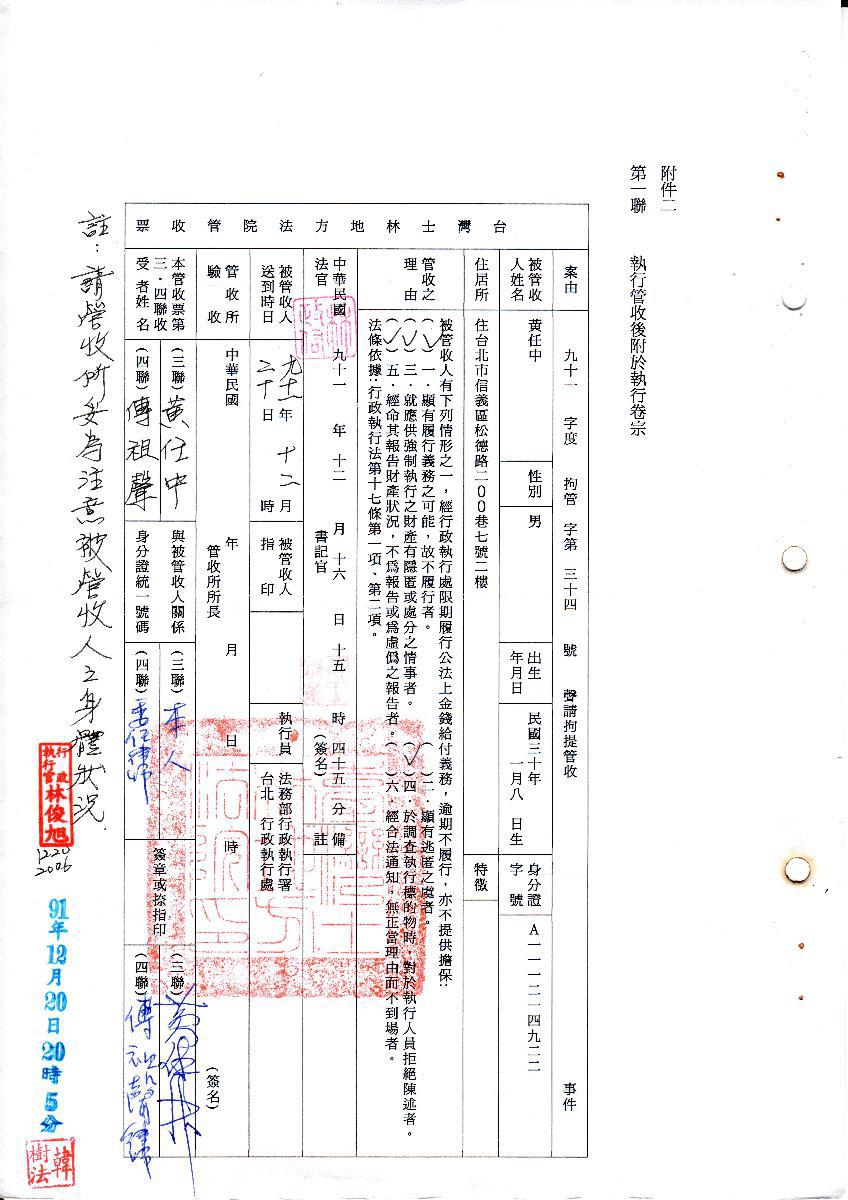 附件二
第一聯　執行管收後附於執行卷宗
台灣士林地方法院管收票
案由　九十一　字度　拘管　字第　三十四　號　聲請拘提管收　事件
被管收人姓名　黃任中　性別　男　出生年月日　民國三十年一月八日生　身分證字號　A一一一二一四九二二
住居所　住台北市信義區松德路二00巷七號二樓　特徵
管收之理由
被管收人有下列情形之一，經行政執行處限期履行公法上金錢給付義務，逾期不履行，亦不提供擔保：
(✓)一．顯有履行義務之可能，故不履行者。　( )二．顯有逃匿之虞者。
(✓)三．就應供強制執行之財產有隱匿或處分之情事者。　(✓)四．於調查執行標的物時，對於執行人員拒絕陳述者。
(✓)五．經命其報告財產狀況，不為報告或為虛偽之報告者。( )六．經合法通知，無正當理由而不到場者。
法條依據：行政執行法第十七條第一項、第二項。
中華民國　九十一　年　十二　月　十六　日　十五　時　四十五　分　備註
法官　書記官　(簽名)
被管收人送到時日　九十一年十二月二十日　時　被管收人指印　執行員　法務部行政執行署台北行政執行處
管收所驗收　中華民國　年　月　日　時
管收所所長　(簽名)
本管收票第三．四聯收受者姓名　(三聯)黃任中　與被管收人關係　(三聯)本人　簽章或捺指印　(三聯)
(四聯)傅祖聲　身分證統一號碼　(四聯)　(四聯)傅祖聲律師
註：請管收所妥為注意被管收人之身體狀況．
行政執行官林俊旭
1220
2006
91年12月20日20時5分
韓樹法